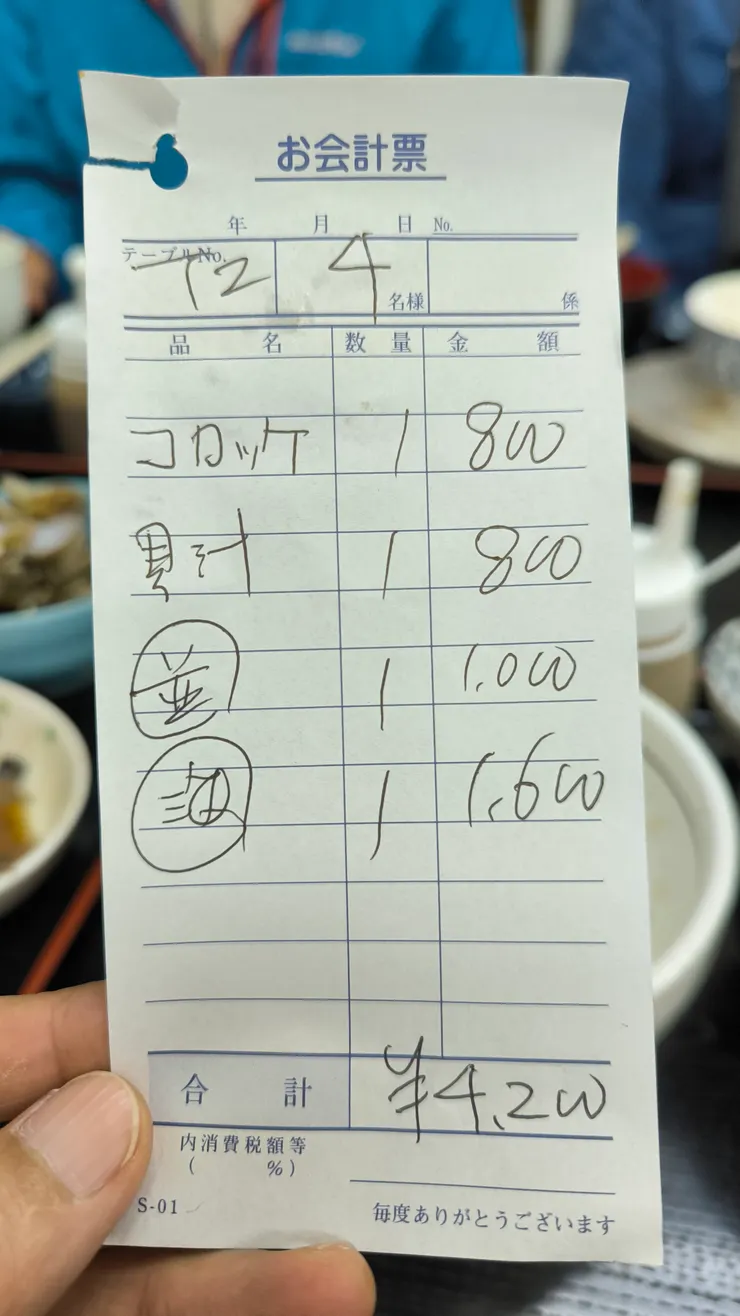 お会計票
年 月 日 No.
テーブルNo. 72 4 名様 係
品名 数量 金額
コロッケ 1 800
1 800
並 1 1,000
海 1 1,600
合計 ¥4,200
内消費税額等
( %)
S-01 毎度ありがとうございます